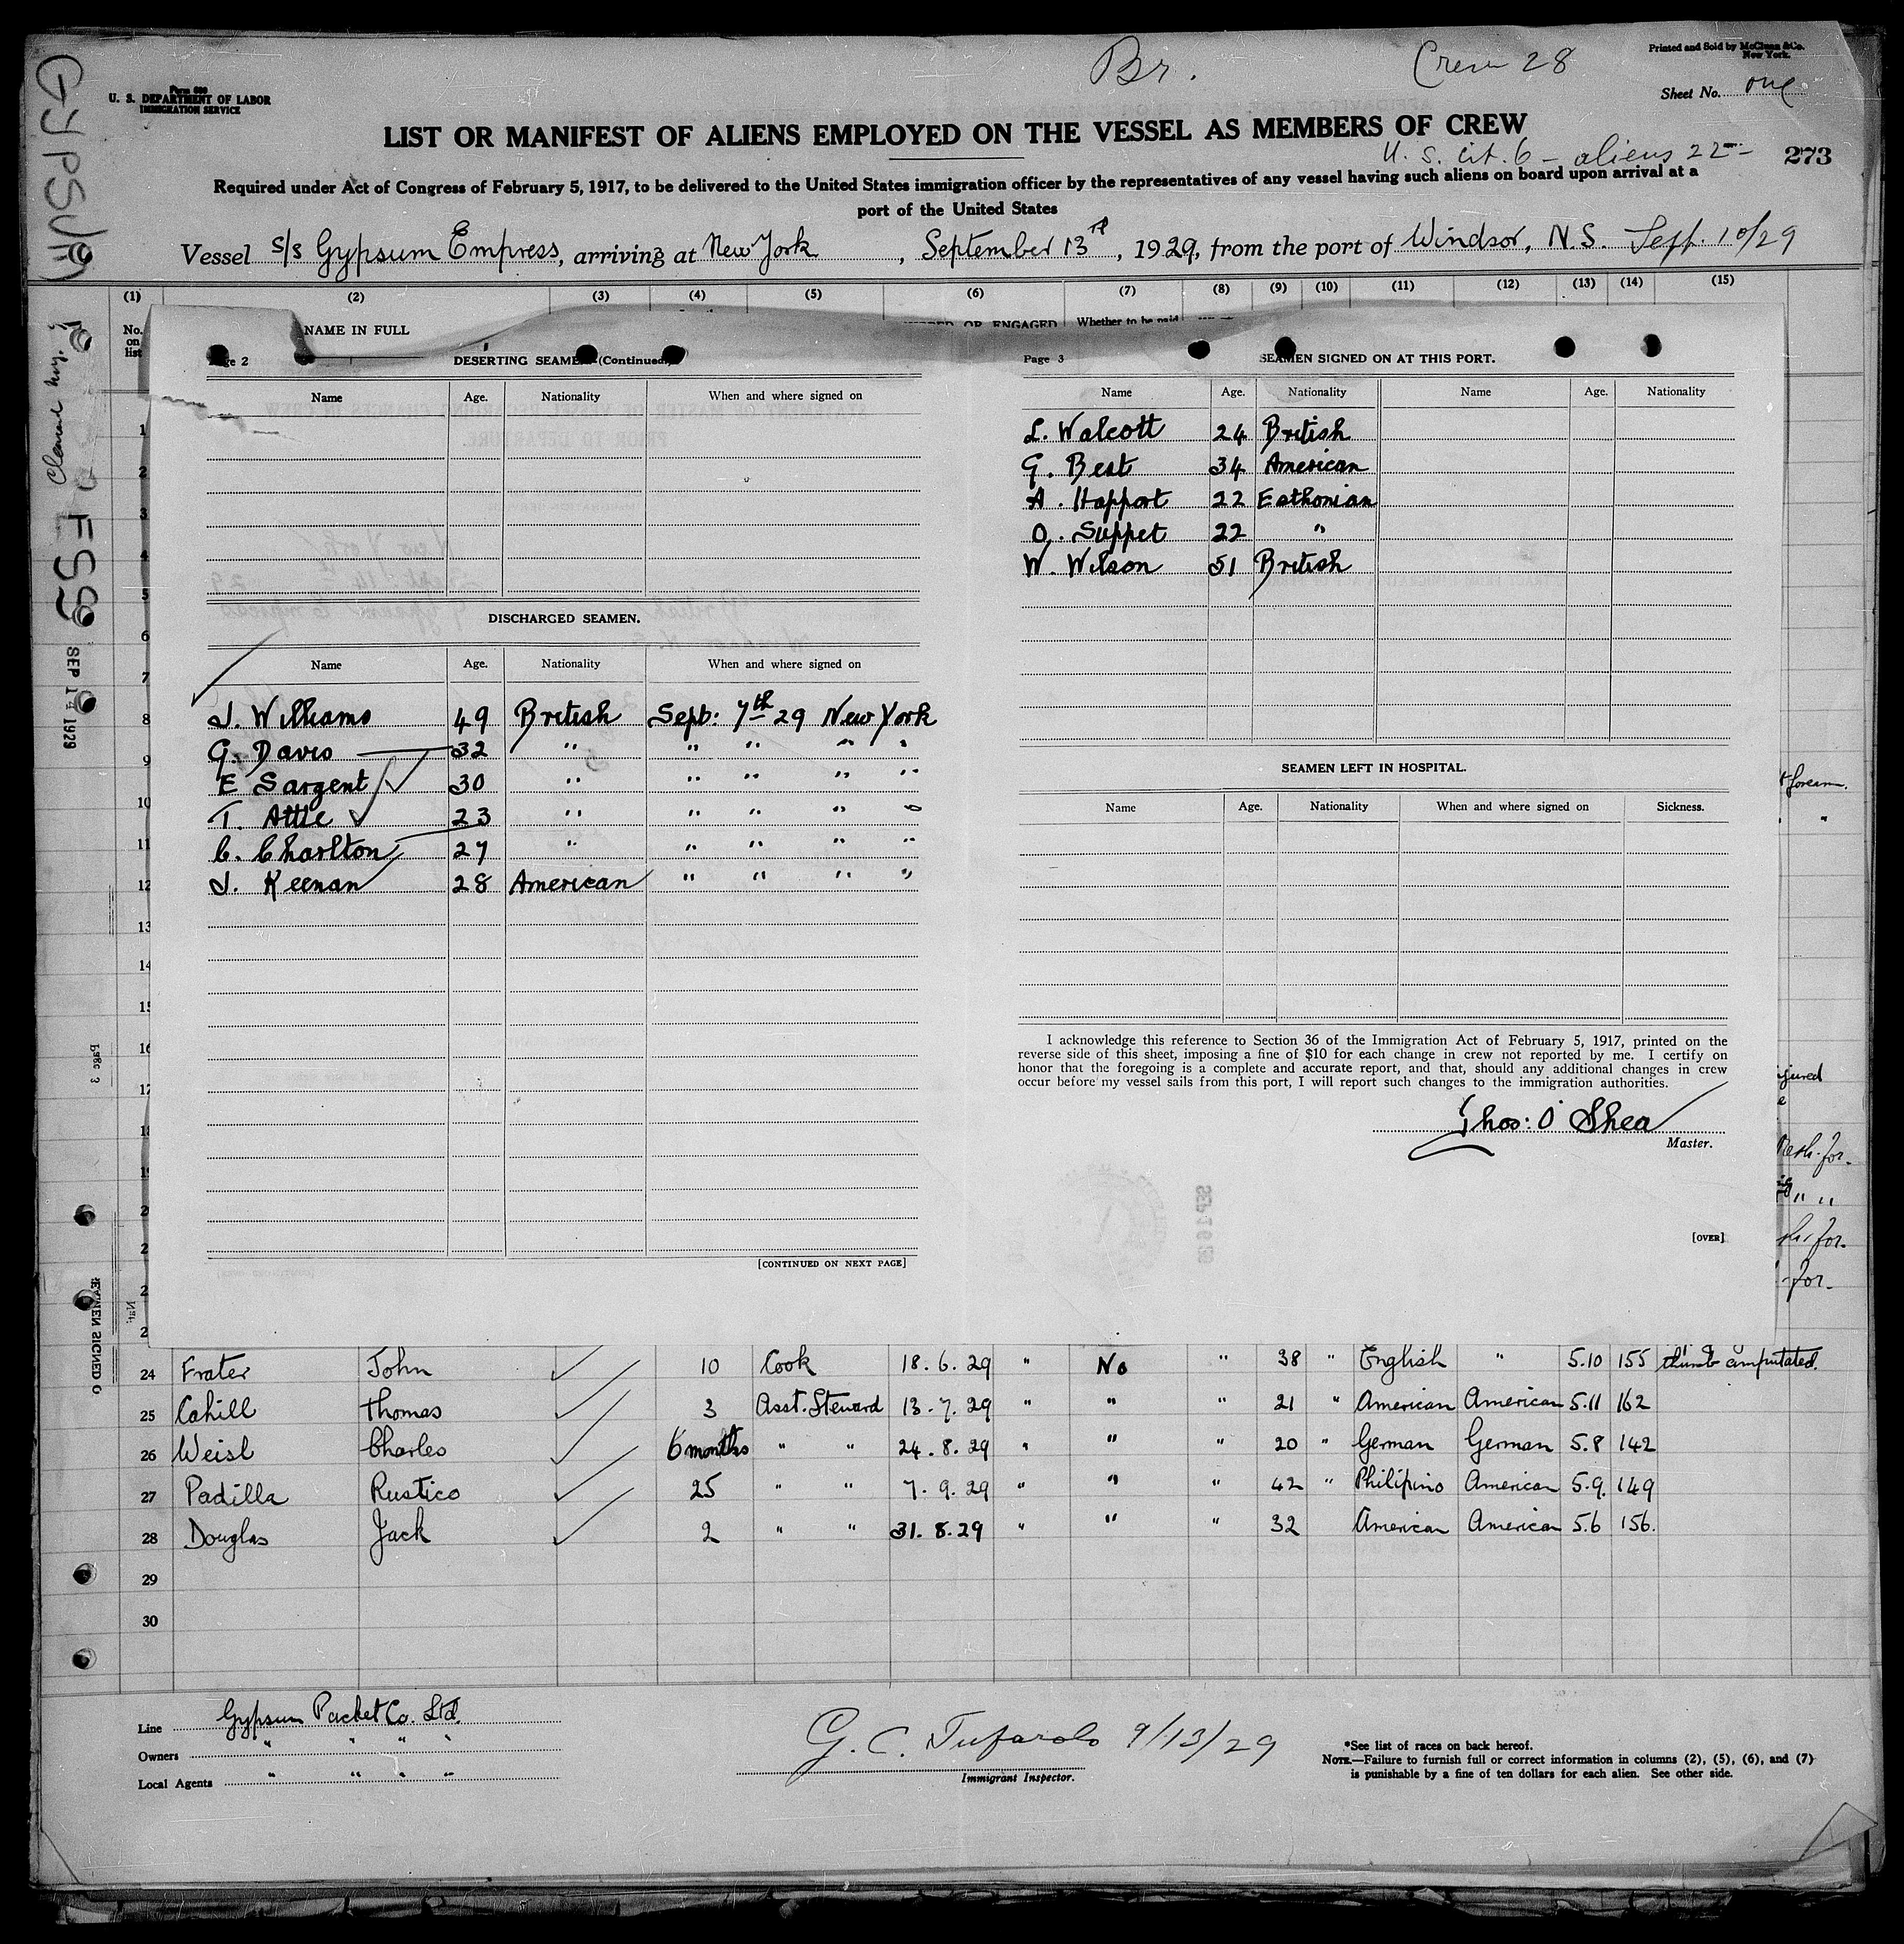 Br.
Crew 28
Printed and Sold by McClean & Co.
New York.
Form 689
U. S. DEPARTMENT OF LABOR
IMMIGRATION SERVICE
Sheet No. one
LIST OR MANIFEST OF ALIENS EMPLOYED ON THE VESSEL AS MEMBERS OF CREW
U. S. cit. 6 - aliens 22 -
273
Required under Act of Congress of February 5, 1917, to be delivered to the United States immigration officer by the representatives of any vessel having such aliens on board upon arrival at a
port of the United States
Vessel S/S Gypsum Empress, arriving at New York, September 13th, 1929, from the port of Windsor, N.S. Sept. 10/29
(1) (2) (3) (4) (5) (6) (7) (8) (9) (10) (11) (12) (13) (14) (15)
No. on list
NAME IN FULL
OR ENGAGED
Whether to be paid
GYPSUM
SEP 14 1929
Page 3
Page 2
DESERTING SEAMEN (Continued)
Name Age. Nationality When and where signed on
DISCHARGED SEAMEN.
Name Age. Nationality When and where signed on
J. Williams 49 British Sept: 7th 29 New York
G. Davis 32 " " " " "
E Sargent 30 " " " " "
T. Attle 23 " " " " "
C. Charlton 27 " " " " "
J. Keenan 28 American " " " "
[CONTINUED ON NEXT PAGE]
Page 3
SEAMEN SIGNED ON AT THIS PORT.
Name Age. Nationality Name Age. Nationality
L. Walcott 24 British
G. Best 34 American
A. Happort 22 Esthonian
O. Suppet 22 "
W. Wilson 51 British
SEAMEN LEFT IN HOSPITAL.
Name Age. Nationality When and where signed on Sickness.
I acknowledge this reference to Section 36 of the Immigration Act of February 5, 1917, printed on the
reverse side of this sheet, imposing a fine of $10 for each change in crew not reported by me. I certify on
honor that the foregoing is a complete and accurate report, and that, should any additional changes in crew
occur before my vessel sails from this port, I will report such changes to the immigration authorities.
Thos: O'Shea
Master.
[OVER]
1
2
3
4
5
6
7
8
9
10
11
12
13
14
16
17
24 Frater John 10 Cook 18.6.29 " No " 38 " English " 5.10 155 thumb amputated.
25 Cahill Thomas 3 Asst. Steward 13.7.29 " " " 21 " American American 5.11 162
26 Weisl Charles 6 months " " 24.8.29 " " " 20 " German German 5.8 142
27 Padilla Rustico 25 " " 7.9.29 " " " 42 " Philipino American 5.9. 149
28 Douglas Jack 2 " " 31.8.29 " " " 32 American American 5.6 156.
29
30
Line Gypsum Packet Co. Ltd.
Owners " " " "
Local Agents " " " "
G. C. Tufarolo 9/13/29
Immigrant Inspector.
*See list of races on back hereof.
NOTE.—Failure to furnish full or correct information in columns (2), (5), (6), and (7)
is punishable by a fine of ten dollars for each alien. See other side.